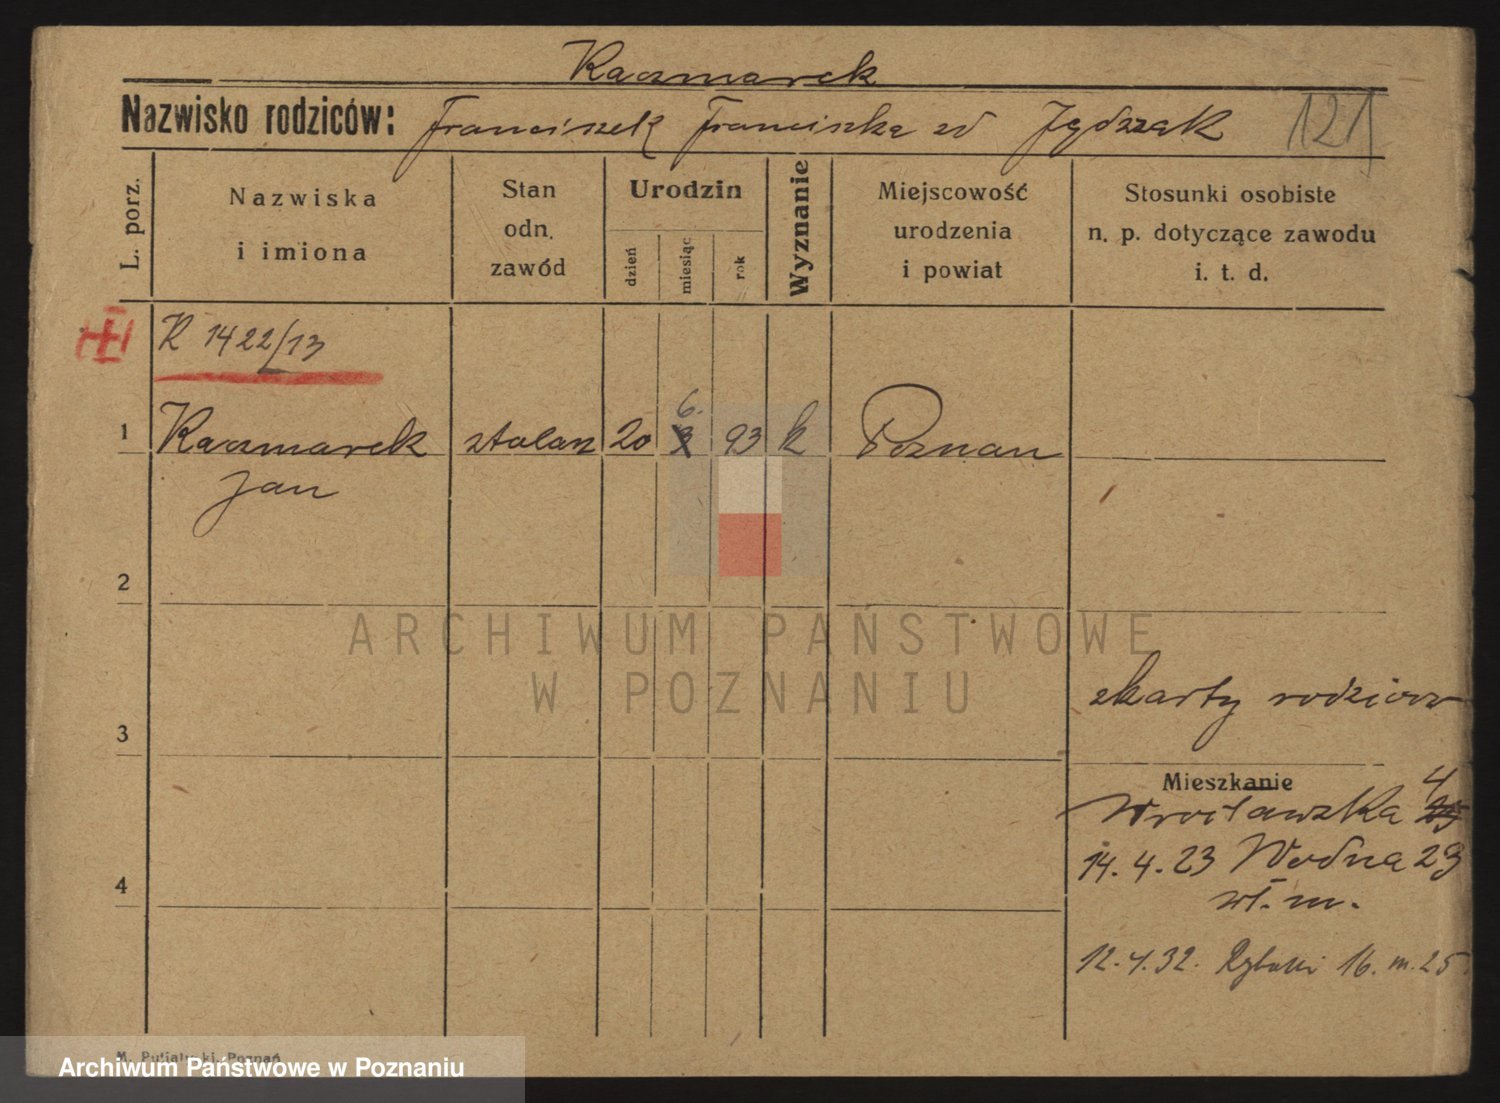 Kaczmarek
Nazwisko rodziców: Franciszek Franciszka zd Jędrzak
121
L. porz.
Nazwiska
i imiona
Stan
odn.
zawód
Urodzin
dzień
miesiąc
rok
Wyznanie
Miejscowość
urodzenia
i powiat
Stosunki osobiste
n. p. dotyczące zawodu
i. t. d.
R 1422/13
6.
1 Kaczmarek stolarz 20 3 93 k Poznan
Jan
2
ARCHIWUM PAŃSTWOWE
W POZNANIU
zkarty rodziców
3
Mieszkanie
4
Wrocławska 25
14. 4. 23 Wodna 23
4
wł. m.
12. 4. 32. Rybaki 16. m. 25
M. Putiatycki, Poznań
Archiwum Państwowe w Poznaniu